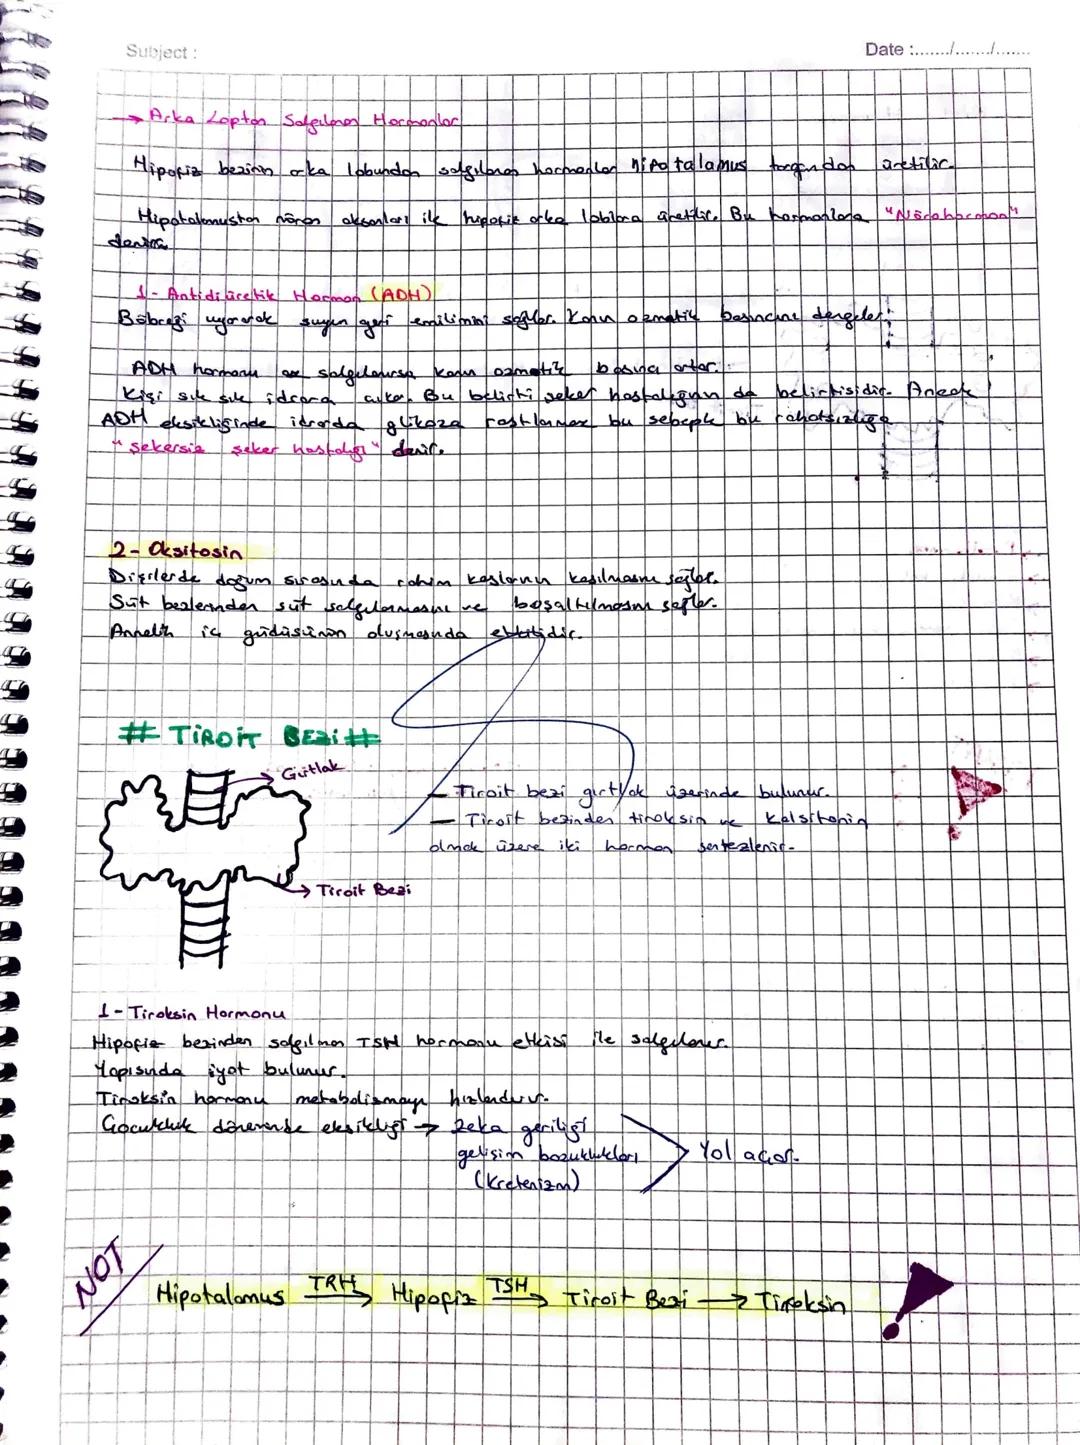 Subject :
Date :......./......./.......
→ Arka Loptan Salgılanan Hormonlar
Hipofiz bezinin arka lobundan salgılanan hormonlar hipotalamus üretilir.
Hipotalamustan nöron aksonları ile hipofiz arka loblara üretilir. Bu hormonlara "Nörohormon"
denir.
1- Antidiüretik Hormon (ADH)
Böbreği uyararak suyun geri emilimini sağlar. Kanın ozmotik basıncını dengeler.
ADH hormonu az salgılanırsa kanın ozmotik basıncı artar.
Kişi sık sık idrara çıkar. Bu belirti şeker hastalığının da belirtisidir. Ancak
ADH eksikliğinde idrarda glikoza rastlanmaz bu sebeple bu rahatsızlığa
"şekersiz şeker hastalığı" denir.
2- Oksitosin
Dişilerde doğum sırasında rahim kaslarının kasılmasını sağlar.
Süt bezlerinden süt salgılanmasını ve boşaltılmasını sağlar.
Annelik iç güdüsünün oluşmasında etkilidir.
# TİROİT BEZİ #
Gırtlak
- Tiroit bezi gırtlak üzerinde bulunur.
- Tiroit bezinden tiroksin ve kalsitonin
olmak üzere iki hormon sentezlenir.
→ Tiroit Bezi
1- Tiroksin Hormonu
Hipofiz bezinden salgılanan TSH hormonu etkisi ile salgılanır.
Yapısında iyot bulunur.
Tiroksin hormonu metabolizmayı hızlandırır.
Çocukluk döneminde eksikliği → zeka geriliği
gelişim bozuklukları Yol açar.
(Kretenizm)
NOT
Hipotalamus TRH→ Hipofiz TSH→ Tiroit Bezi → Tiroksin